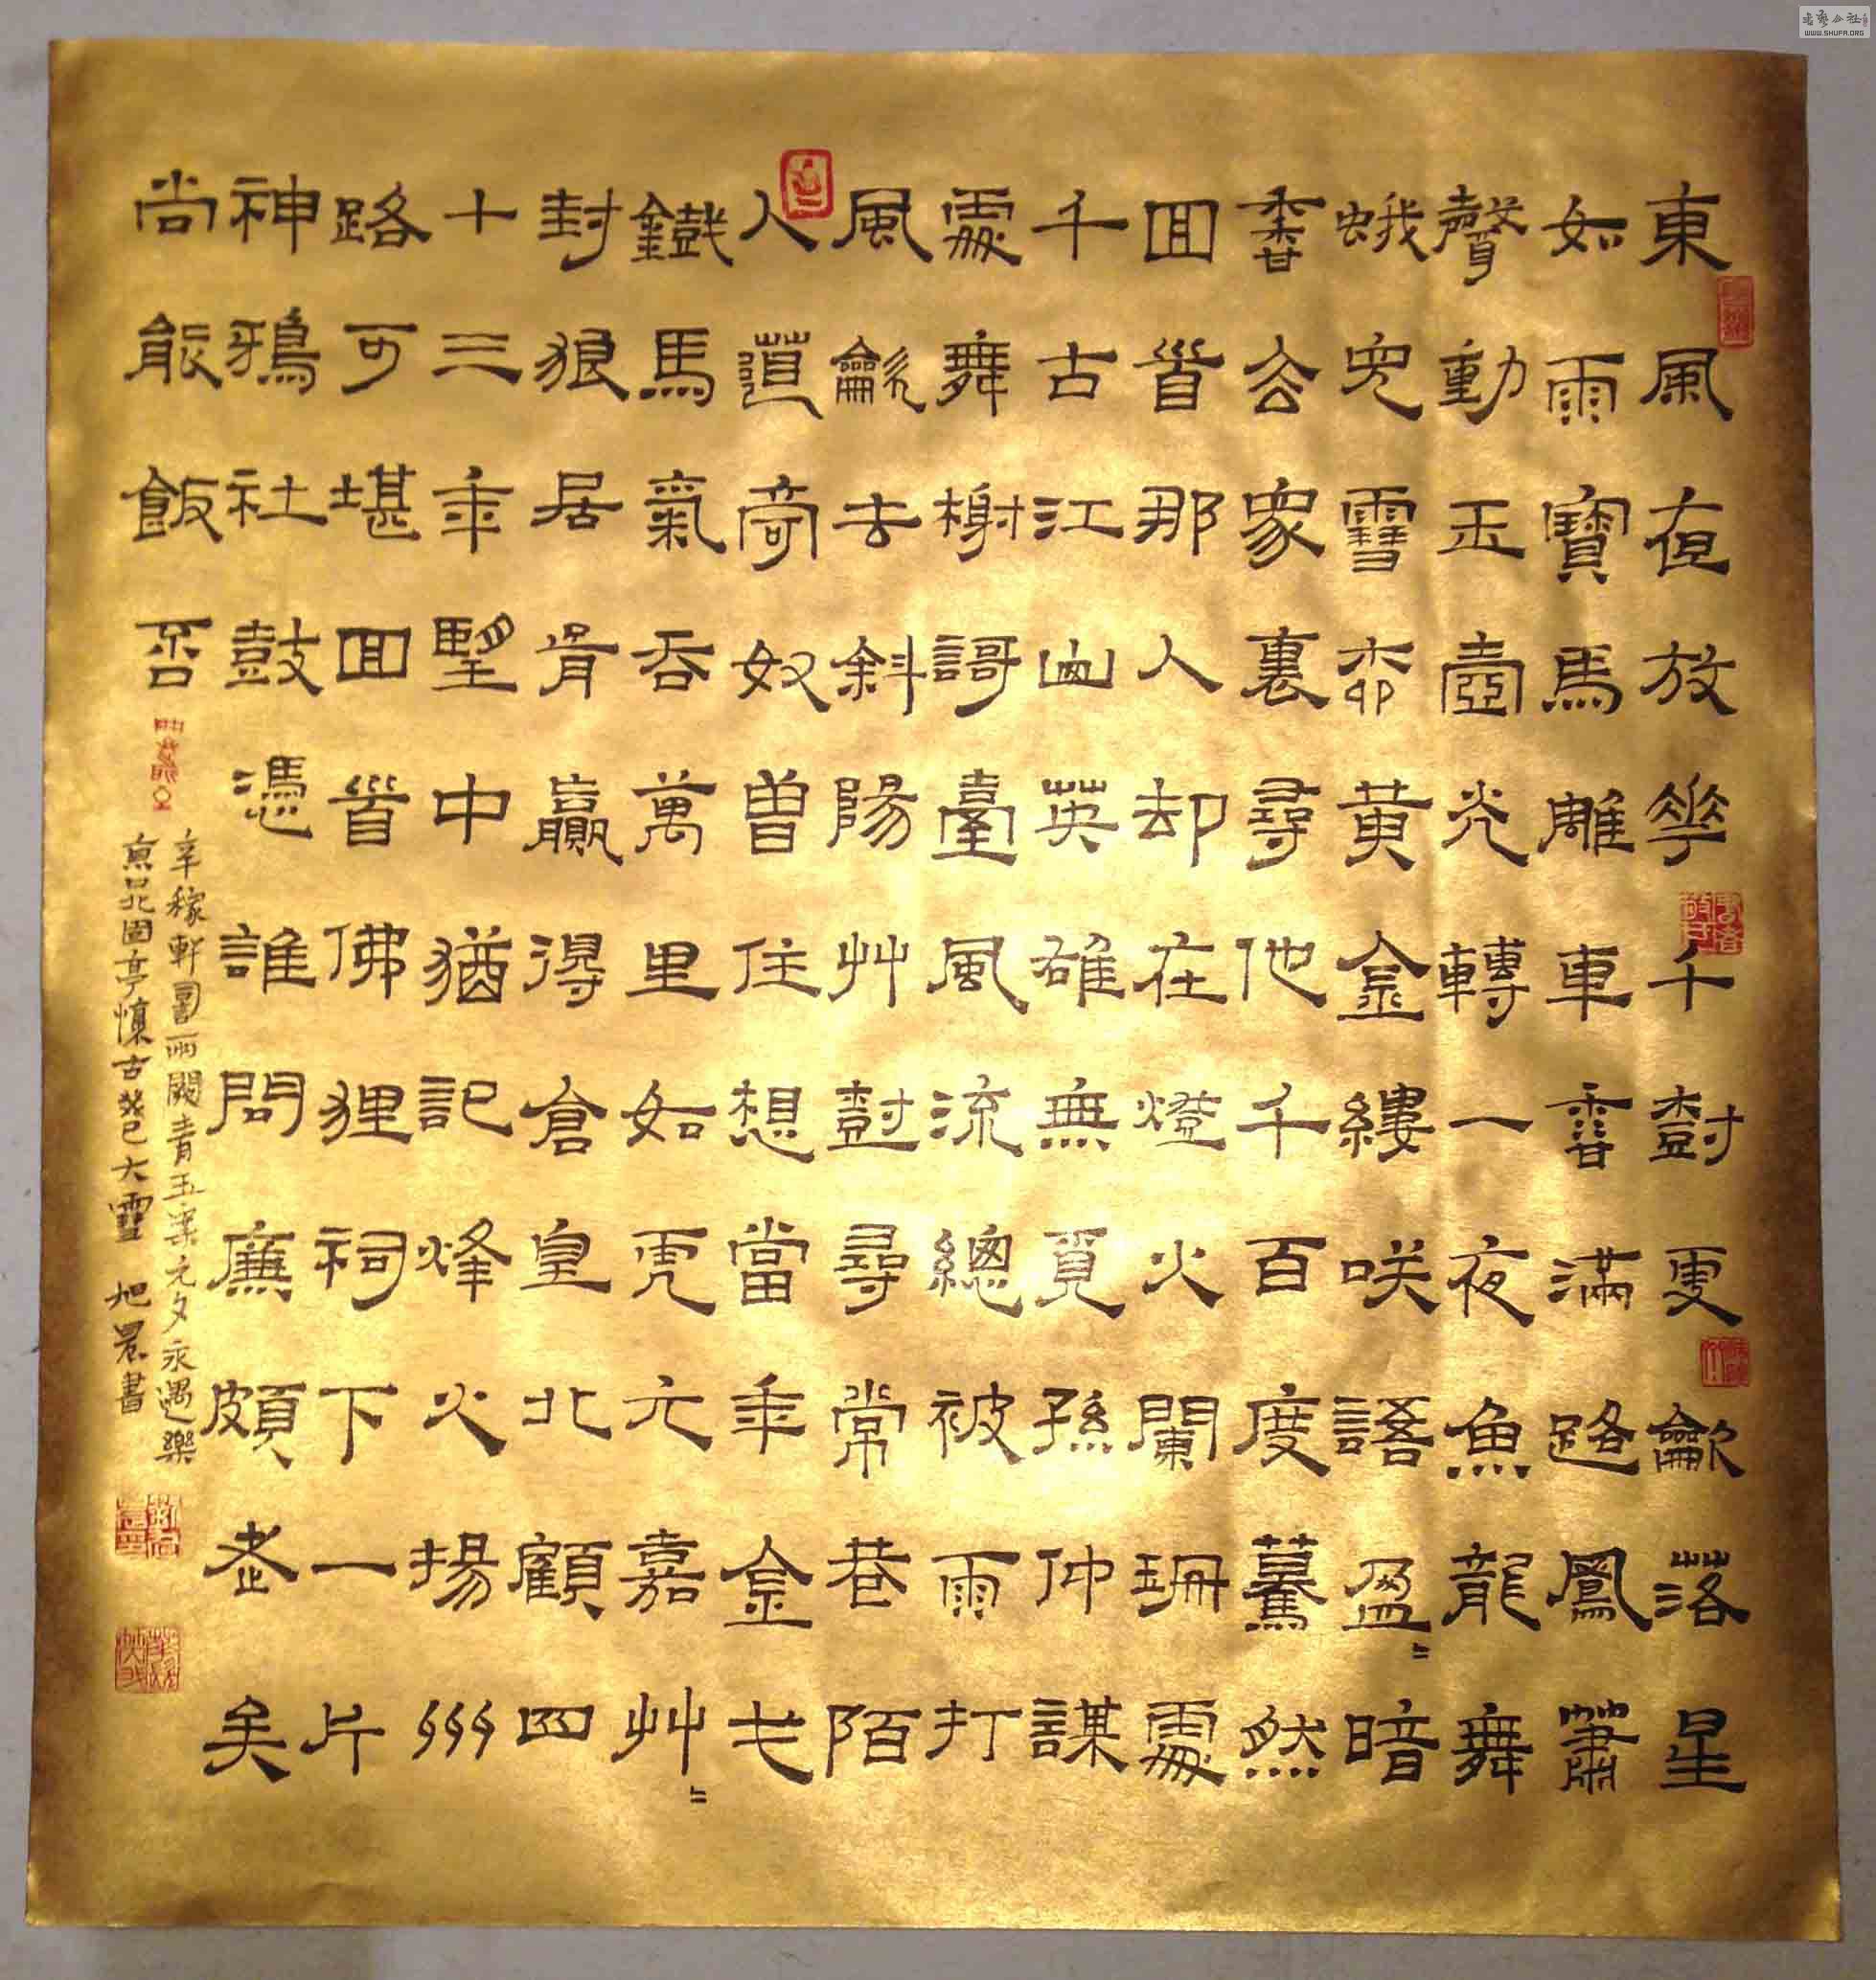 東風夜放花千樹更龡落星
如雨寶馬雕車香滿路鳳簫
聲動玉壺光轉一夜魚龍舞
蛾兒雪柳黃金縷咲語盈〻暗
香去眾裏尋他千百度驀然
回首那人却在燈火闌珊處
千古江山英雄無覓孫仲謀
處舞榭謌臺風流總被雨打
風龡去斜陽艸樹尋常巷陌
人道寄奴曾住想當年金戈
鐵馬氣吞萬里如虎元嘉艸〻
封狼居胥贏得倉皇北顧四
十三年望中猶記烽火揚州
路可堪回首佛狸祠下一片
神鴉社鼓憑誰問廉頗老矣
尚能飯否
辛稼軒詞兩闋青玉案元夕永遇樂
京口北固亭懷古癸巳大雪 旭晨書
WWW.SHUFA.ORG